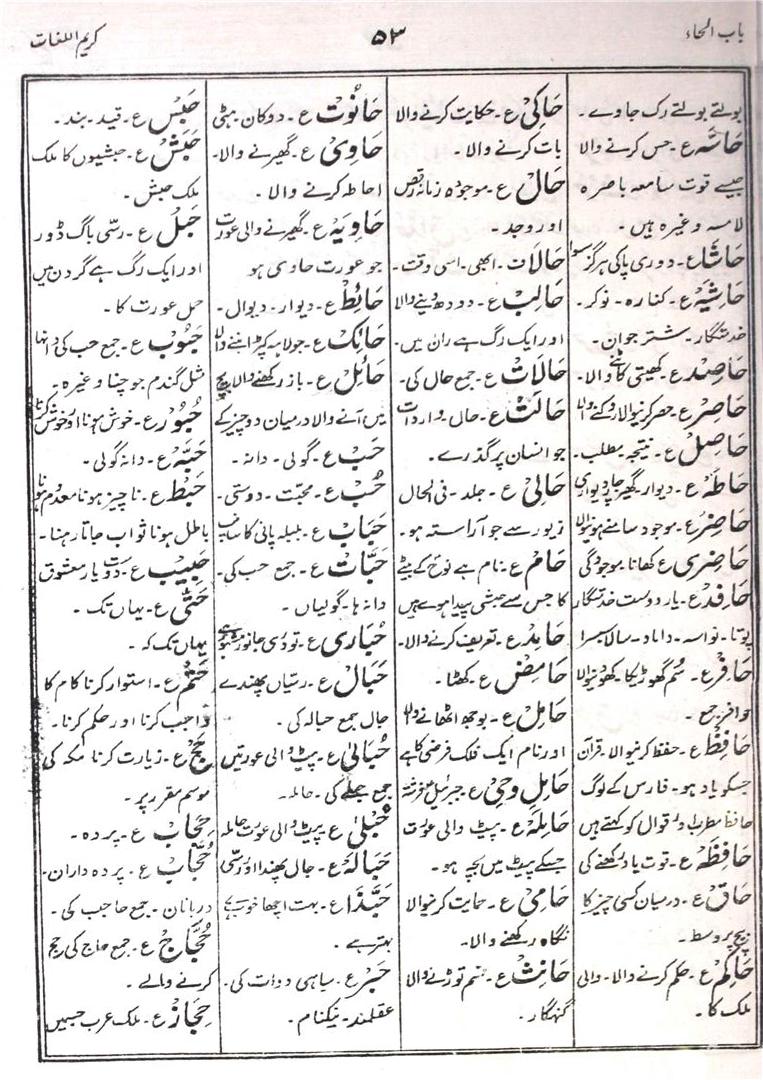 باب الحاء
۵۳
کریم اللغات
بولتے بولتے رک جاوے ۔
حَاسَّہ ع ۔ حس کرنے والا
جیسے قوت سامعہ باصرہ
لامسہ وغیرہ ہیں ۔
حَاشَا ع ۔ دوری پاکی ہرگز سوا
حَاشِیَہ ع ۔ کنارہ ۔ نوکر ۔
خدمتگار ۔ شتر جوان ۔
حَاصِد ع ۔ کھیتی کاٹنے والا ۔
حَاصِر ع ۔ حصر کرنیوالا روکنے والا
حَاصِل ع ۔ نتیجہ مطلب ۔
حَاطَہ ع ۔ دیوار گھیر چار دیواری
حَاضِر ع ۔ موجود سامنے ہونیوالا
حَاضِری ع کھانا ۔ موجودگی
حَافِد ع ۔ یار دوست خدمتگار
پوتا ۔ نواسہ ۔ داماد ۔ سالا سسرا
حَافِر ع ۔ سُم گھوڑیکا کھودنیوالا
حوافر جمع ۔
حَافِظ ع ۔ حفظ کرنیوالا ۔ قرآن
جسکو یاد ہو ۔ فارس کے لوگ
حافظ مطرب اور قوال کو کہتے ہیں
حَافِظَہ ع ۔ قوت یاد رکھنے کی
حَاقّ ع ۔ درمیان کسی چیز کا
بیچ پر وسط ۔
حَاکِم ع ۔ حکم کرنے والا ۔ والی
ملک کا ۔
حَاکِی ع ۔ حکایت کرنے والا
بات کرنے والا ۔
حَال ع ۔ موجودہ زمانہ رقص
اور وجد ۔
حَالات ۔ ابھی ۔ اسی وقت ۔
حَالِب ع ۔ دودھ دینے والا
اور ایک رگ ہے ران میں ۔
حَالَات ع ۔ جمع حال کی ۔
حَالَت ع ۔ حال ۔ واردات
جو انسان پر گذرے ۔
حَالِی ع ۔ جلد ۔ فی الحال
زیور سے جو آراستہ ہو ۔
حَام ع ۔ نام ہے نوح کے بیٹے
کا جس سے حبشی پیدا ہوے ہیں
حَامِد ع ۔ تعریف کرنے والا ۔
حَامِض ع ۔ کھٹا ۔
حَامِل ع ۔ بوجھ اٹھانے والا
اور نام ایک فلک فرضی کا ہے
حَامِلِ وحی ع ۔ جبرئیل فرشتہ
حَامِلَہ ع ۔ پیٹ والی عورت
جسکے پیٹ میں بچہ ہو ۔
حَامِی ع ۔ حمایت کرنیوالا
نگاہ رکھنے والا ۔
حَانِث ع ۔ قسم توڑنے والا
گنہگار ۔
حَانُوت ع ۔ دوکان ہٹی
حَاوِی ع ۔ گھیرنے والا ۔
احاطہ کرنے والا ۔
حَاوِیَہ ع ۔ گھیرنے والی عورت
جو عورت حاوی ہو
حَائِط ع ۔ دیوار ۔ دیوال ۔
حَائِک ع ۔ جولاہہ کپڑا بننے والا
حَائِل ع ۔ باز رکھنے والا بیچ
میں آنے والا درمیان دو چیز کے
حَب ع ۔ گولی ۔ دانہ ۔
حُب ع ۔ محبت ۔ دوستی ۔
حَبَاب ع ۔ بلبلہ پانی کا سانپ
حَبَّات ع ۔ جمع حب کی ۔
دانہ ہا ۔ گولیاں ۔
حُبَاریٰ ع ۔ تودری جانور مشہور ہے
حِبَال ع ۔ رسیاں پھندے
جال جمع حبالہ کی ۔
حُبَالیٰ ع ۔ پیٹ والی عورتیں
جمع حبلے کی ۔ حاملہ ۔
حُبْلیٰ ع پیٹ والی عورت حاملہ
حِبَالَہ ع ۔ جال پھندا اور رسی
حَبَّذَا ع ۔ بہت اچھا خوب ہے
بہتر ہے ۔
حِبْر ع ۔ سیاہی دوات کی ۔
عقلمند ۔ نیکنام ۔
حَبْس ع ۔ قید ۔ بند ۔
حَبَش ع ۔ حبشیوں کا ملک
ملک حبش ۔
حَبْل ع ۔ رسی باگ ڈور
اور ایک رگ ہے گردن میں
حمل عورت کا ۔
حُبُوب ع ۔ جمع حب کی دانہا
مثل گندم جو چنا وغیرہ ۔
حُبُور ع ۔ خوش ہونا اور خوش کرنا
حَبَّہ ع ۔ دانہ گولی ۔
حَبْط ع ۔ ناچیز ہونا معدوم ہونا
باطل ہونا ثواب جاتا رہنا ۔
حَبِیب ع ۔ دوست یار معشوق
حَتّٰی ع ۔ یہاں تک ۔
یہاں تک کہ ۔
حَتْم ع ۔ استوار کرنا کام کا
واجب کرنا اور حکم کرنا ۔
حَجّ ع ۔ زیارت کرنا مکہ کی
موسم مقرر پر ۔
حِجَاب ع ۔ پردہ ۔
حُجَّاب ع ۔ پردہ داران ۔
دربانان ۔ جمع حاجب کی ۔
حُجَّاج ع ۔ جمع حاج کی حج
کرنے والے ۔
حِجَاز ع ۔ ملک عرب جسمیں